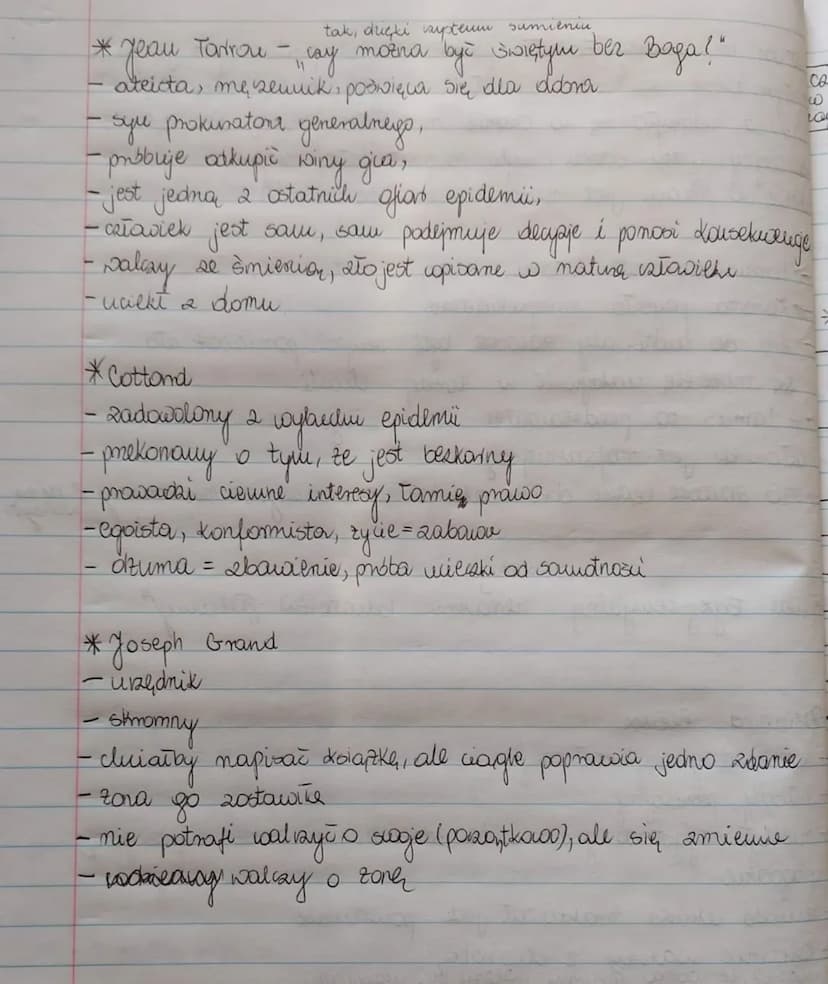 tak, dzięki czystemu sumieniu
* Jean Tarrou – „czy można być świętym bez Boga?"
– ateista, męczennik, poświęca się dla dobra
– syn prokuratora generalnego,
– próbuje odkupić winy ojca,
– jest jedną z ostatnich ofiar epidemii,
– człowiek jest sam, sam podejmuje decyzje i ponosi konsekwencje
– walczy ze śmiercią, zło jest wpisane w naturę człowieka
– uciekł z domu
* Cottard
– zadowolony z wybuchu epidemii
– przekonany o tym, że jest bezkarny
– prowadzi ciemne interesy, łamie prawo
– egoista, konformista, życie = zabawa
– dżuma = zbawienie, próba ucieczki od samotności
* Joseph Grand
– urzędnik
– skromny
– chciałby napisać książkę, ale ciągle poprawia jedno zdanie
– żona go zostawiła
– nie potrafi walczyć o swoje (początkowo), ale się zmienia
– walczy o żonę